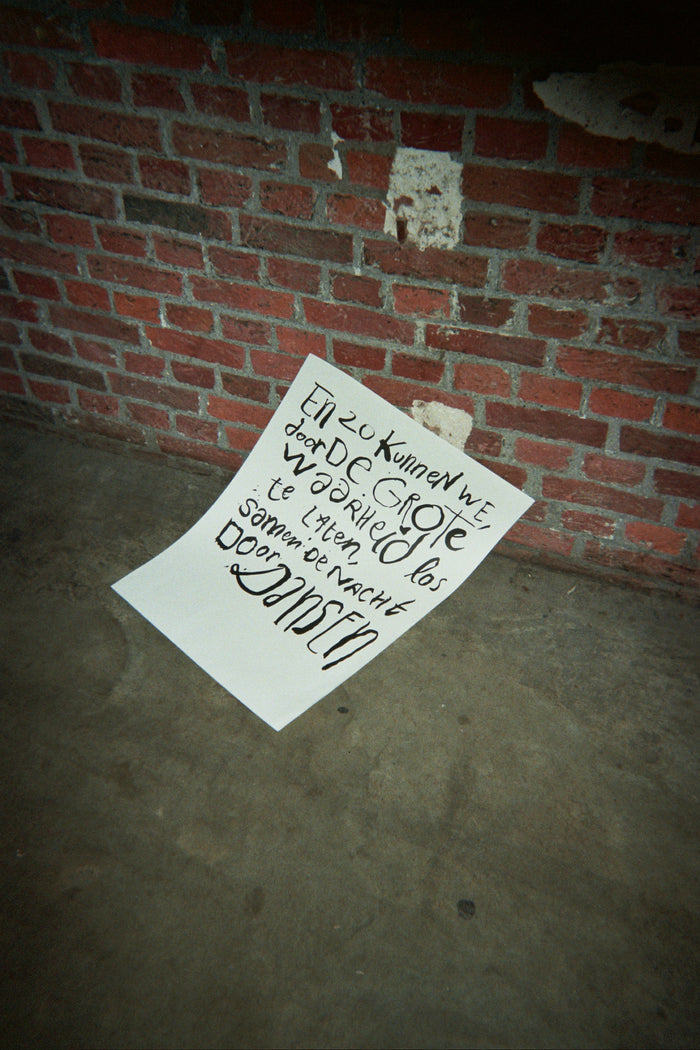 En zo kunnen we,
door DE GROTE
waaRHeid los
te LATEN,
samen DE NACHT
DOOR
DANSEN